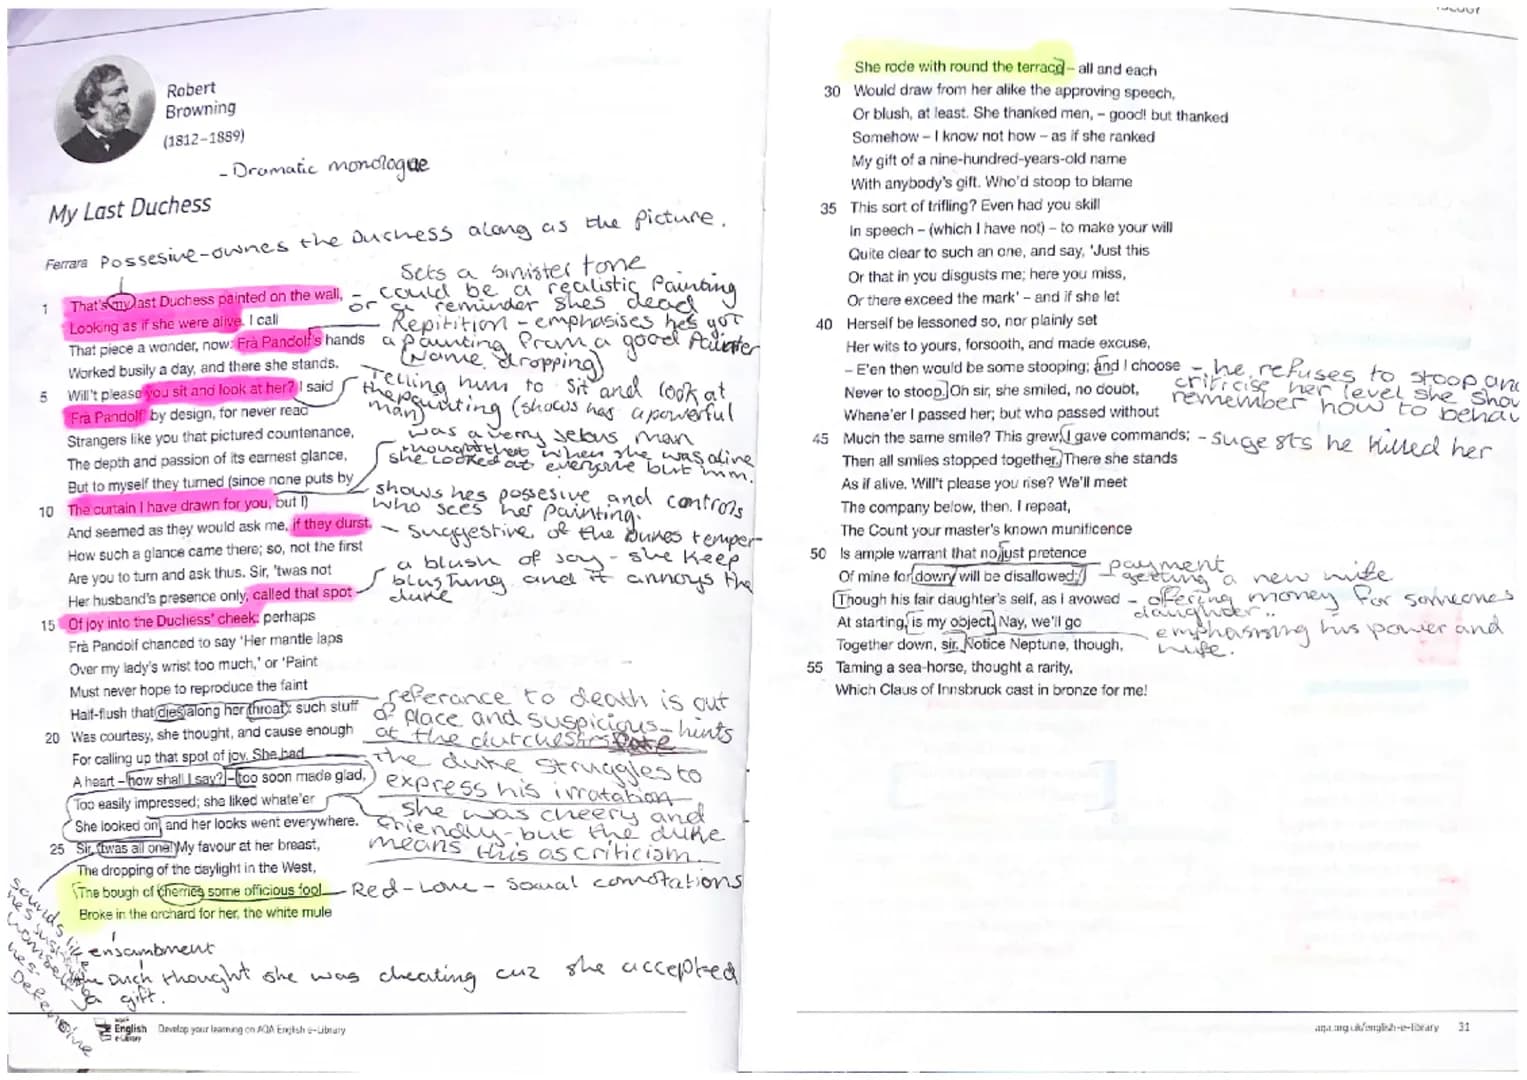 Robert
Browning
(1812–1889)
- Dramatic monologue
My Last Duchess
Ferrara
Possesive-ownes the Duchess along as the Picture.
1 That's my last Duchess painted on the wall,
Looking as if she were alive. I call
That piece a wonder, now: Frà Pandolf's hands
Worked busily a day, and there she stands.
5 Will't please you sit and look at her? I said
'Frà Pandolf' by design, for never read
Strangers like you that pictured countenance,
The depth and passion of its earnest glance,
But to myself they turned (since none puts by
10 The curtain I have drawn for you, but I)
And seemed as they would ask me, if they durst,
How such a glance came there; so, not the first
Are you to turn and ask thus. Sir, 'twas not
Her husband's presence only, called that spot
15 Of joy into the Duchess' cheek: perhaps
Frà Pandolf chanced to say 'Her mantle laps
Over my lady's wrist too much,' or 'Paint
Must never hope to reproduce the faint
Half-flush that dies along her throat': such stuff
20 Was courtesy, she thought, and cause enough
For calling up that spot of joy. She had
A heart – how shall I say? – too soon made glad,
Too easily impressed; she liked whate'er
She looked on, and her looks went everywhere.
25 Sir, 'twas all one! My favour at her breast,
The dropping of the daylight in the West,
The bough of cherries some officious fool
Broke in the orchard for her, the white mule
Sets a sinister tone
- could be a realistic Painting
or a reminder shes dead
Repitition - emphasises he's got
a painting from a good Painter
(Name dropping)
Telling him to sit and look at
the painting (shows has a powerful
man)
was a very Jelous man
thought that when she was alive
she looked at everyone but him.
shows hes possesive and controls
who sees her painting.
- Suggestive of the Dukes temper
a blush of joy - she keep
blushing and it annoys the
duke
referance to death is out
of place and suspicious - hints
at the dutchess
the duke struggles to
express his irratation
she was cheery and
friendly - but the duke
means this as criticism.
Red - Love - sexual connotations
ensambment
the Duch thought she was cheating cuz she accepted
a gift.
sounds like
hes
hes
Defensive
English
e-Library
Develop your learning on AQA English e-Library
She rode with round the terrace – all and each
30 Would draw from her alike the approving speech,
Or blush, at least. She thanked men, – good! but thanked
Somehow – I know not how – as if she ranked
My gift of a nine-hundred-years-old name
With anybody's gift. Who'd stoop to blame
35 This sort of trifling? Even had you skill
In speech – (which I have not) – to make your will
Quite clear to such an one, and say, 'Just this
Or that in you disgusts me; here you miss,
Or there exceed the mark' – and if she let
40 Herself be lessoned so, nor plainly set
Her wits to yours, forsooth, and made excuse,
– E'en then would be some stooping; and I choose
Never to stoop. Oh sir, she smiled, no doubt,
Whene'er I passed her; but who passed without
45 Much the same smile? This grew; I gave commands;
Then all smiles stopped together. There she stands
As if alive. Will't please you rise? We'll meet
The company below, then. I repeat,
The Count your master's known munificence
50 Is ample warrant that no just pretence
Of mine for down will be disallowed;
Though his fair daughter's self, as I avowed
At starting, is my object. Nay, we'll go
Together down, sir. Notice Neptune, though,
55 Taming a sea-horse, thought a rarity,
Which Claus of Innsbruck cast in bronze for me!
- he refuses to stoop and
criticise her level she shou
remember how to behav
- sugests he killed her
payment
- getting a new wife
- offering money for someones
daughter..
emphasising his power and
wife.
aqa.org.uk/english-e-library 31